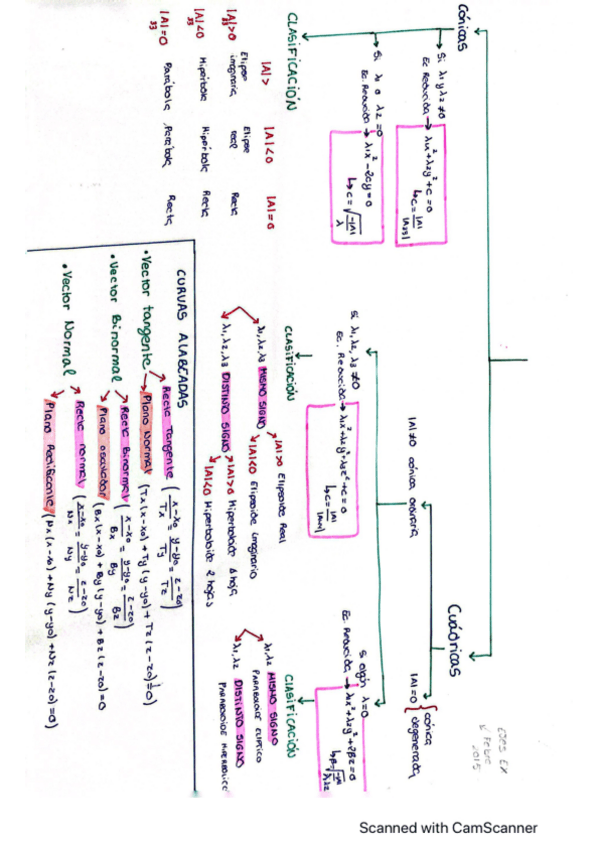 Cónicas
Si λ1 y λ2 ≠0
Ec Reducida → λ1x²+λ2y²+c=0
↳ c = |A| / |A33|
Si λ1 o λ2 =0
Ec. Reducida → λ1x²-2cy=0
↳ c = √(-|A| / λ)
CLASIFICACIÓN
|A|> |A|<0 |A|=0
|A|33>0 Elipse imaginaria Elipse real Recta
|A|33<0 Hipérbola Hipérbola Recta
|A|33=0 Parábola Parábola Recta
Cuádricas
|A|≠0 cónica ordinaria
|A|=0 { cónica degenerada
Si λ1, λ2, λ3 ≠0
Ec. Reducida → λ1x²+λ2y²+λ3z²+c=0
↳ c = |A| / |A44|
CLASIFICACIÓN
λ1, λ2, λ3 MISMO SIGNO
|A|>0 Elipsoide Real
|A|<0 Elipsoide imaginario
λ1, λ2, λ3 DISTINTO SIGNO
|A|>0 Hiperboloide 1 hoja
|A|<0 Hiperboloide 2 hojas
Si algún λ=0
Ec. Reducida → λ1x²+λ2y²+2βz=0
CLASIFICACIÓN
λ1, λ2 MISMO SIGNO
PARABOLOIDE ELIPTICO
λ1, λ2 DISTINTO SIGNO
PARABOLOIDE HIPERBOLICO
CURVAS ALABEADAS
• Vector tangente
Recta Tangente ( x-x0 / Tx = y-y0 / Ty = z-z0 / Tz )
Plano Normal (Tx(x-x0)+Ty(y-y0)+Tz(z-z0)=0)
• Vector Binormal
Recta Binormal ( x-x0 / Bx = y-y0 / By = z-z0 / Bz )
Plano osculador (Bx(x-x0)+By(y-y0)+Bz(z-z0)=0
• Vector Normal
Recta normal ( x-x0 / Nx = y-y0 / Ny = z-z0 / Nz )
Plano Rectificante (Nx(x-x0)+Ny(y-y0)+Nz(z-z0)=0)
2015
Scanned with CamScanner